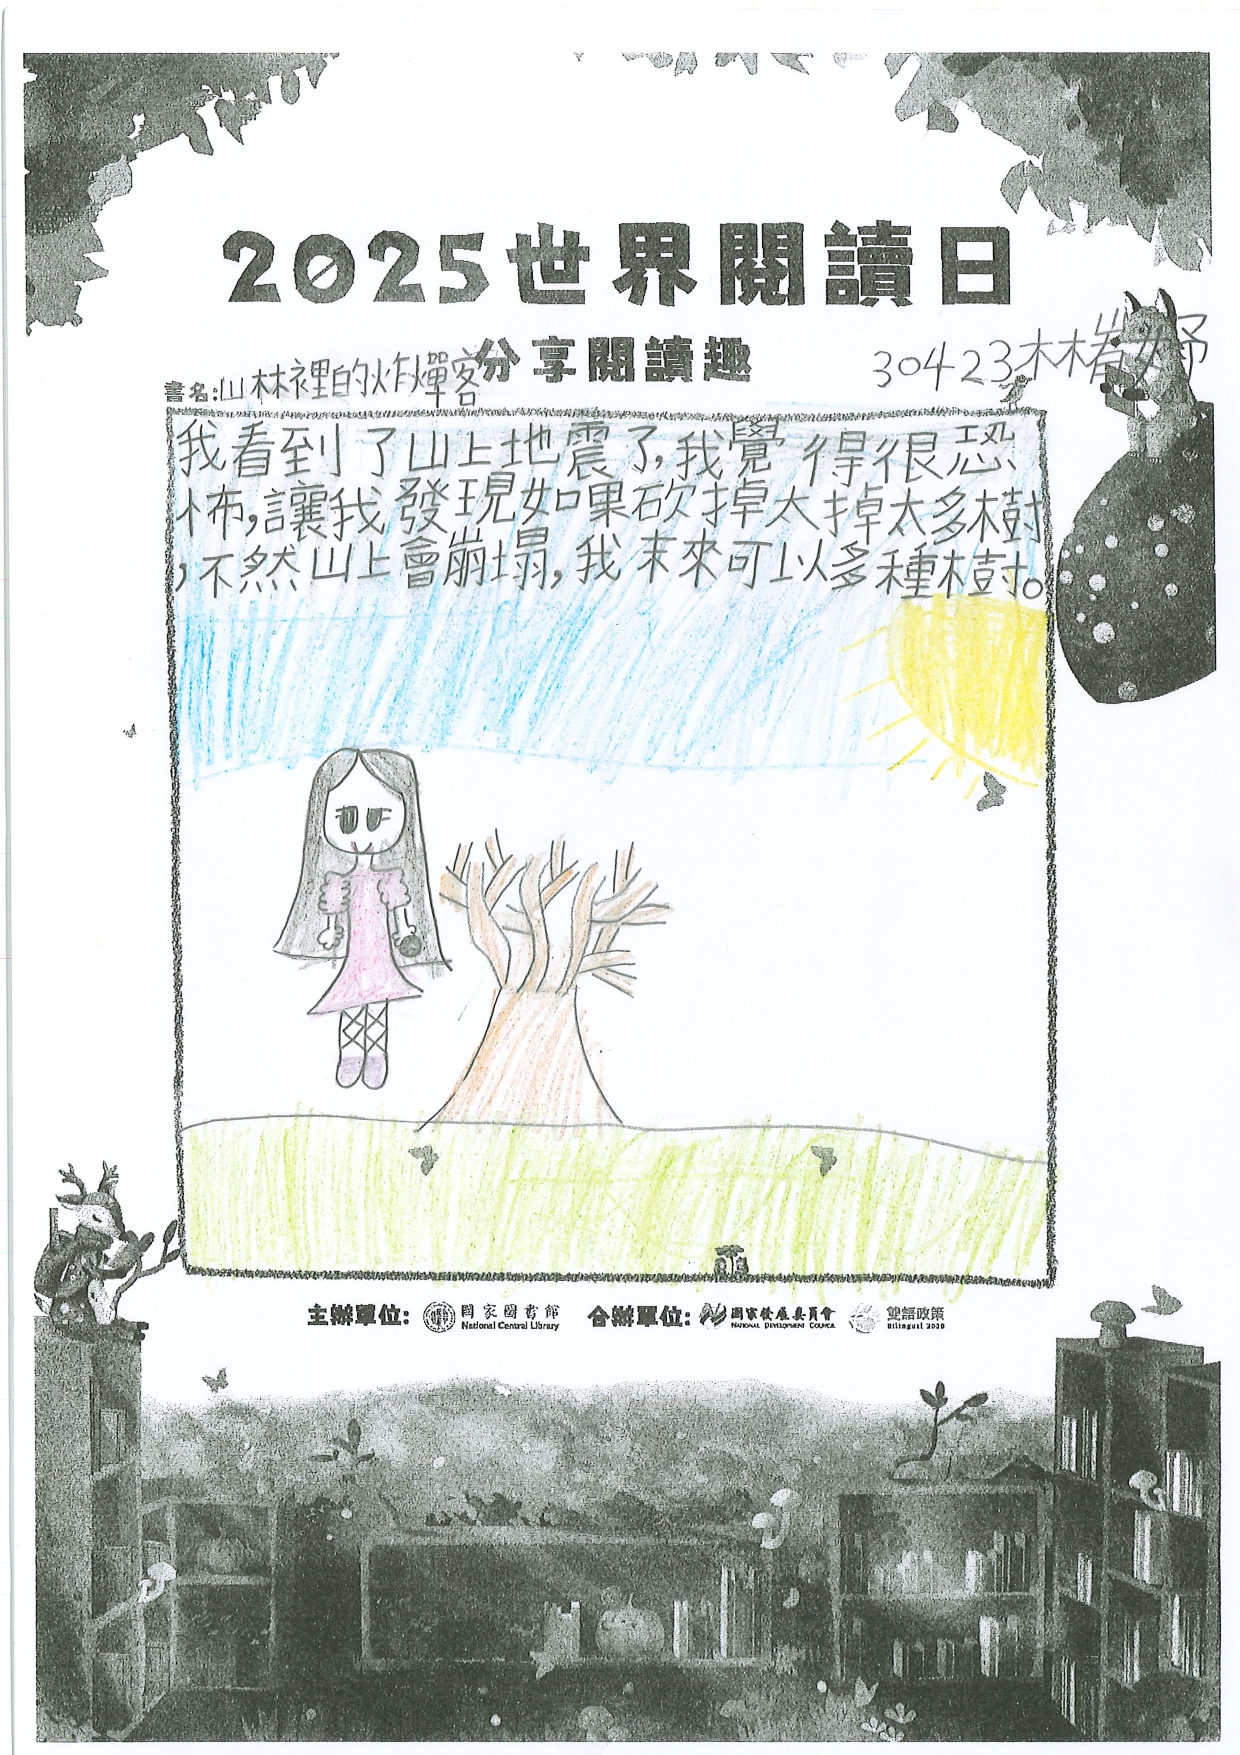 2025世界閱讀日
分享閱讀趣
30423林
書名:山林裡的炸彈客
我看到了山上地震了,我覺得很恐
怖,讓我發現如果砍掉太掉太多樹
,不然山上會崩塌,我未來可以多種樹。
主辦單位: 國家圖書館 National Central Library 合辦單位: 國家發展委員會 NATIONAL DEVELOPMENT COUNCIL 雙語政策 Bilingual 2030